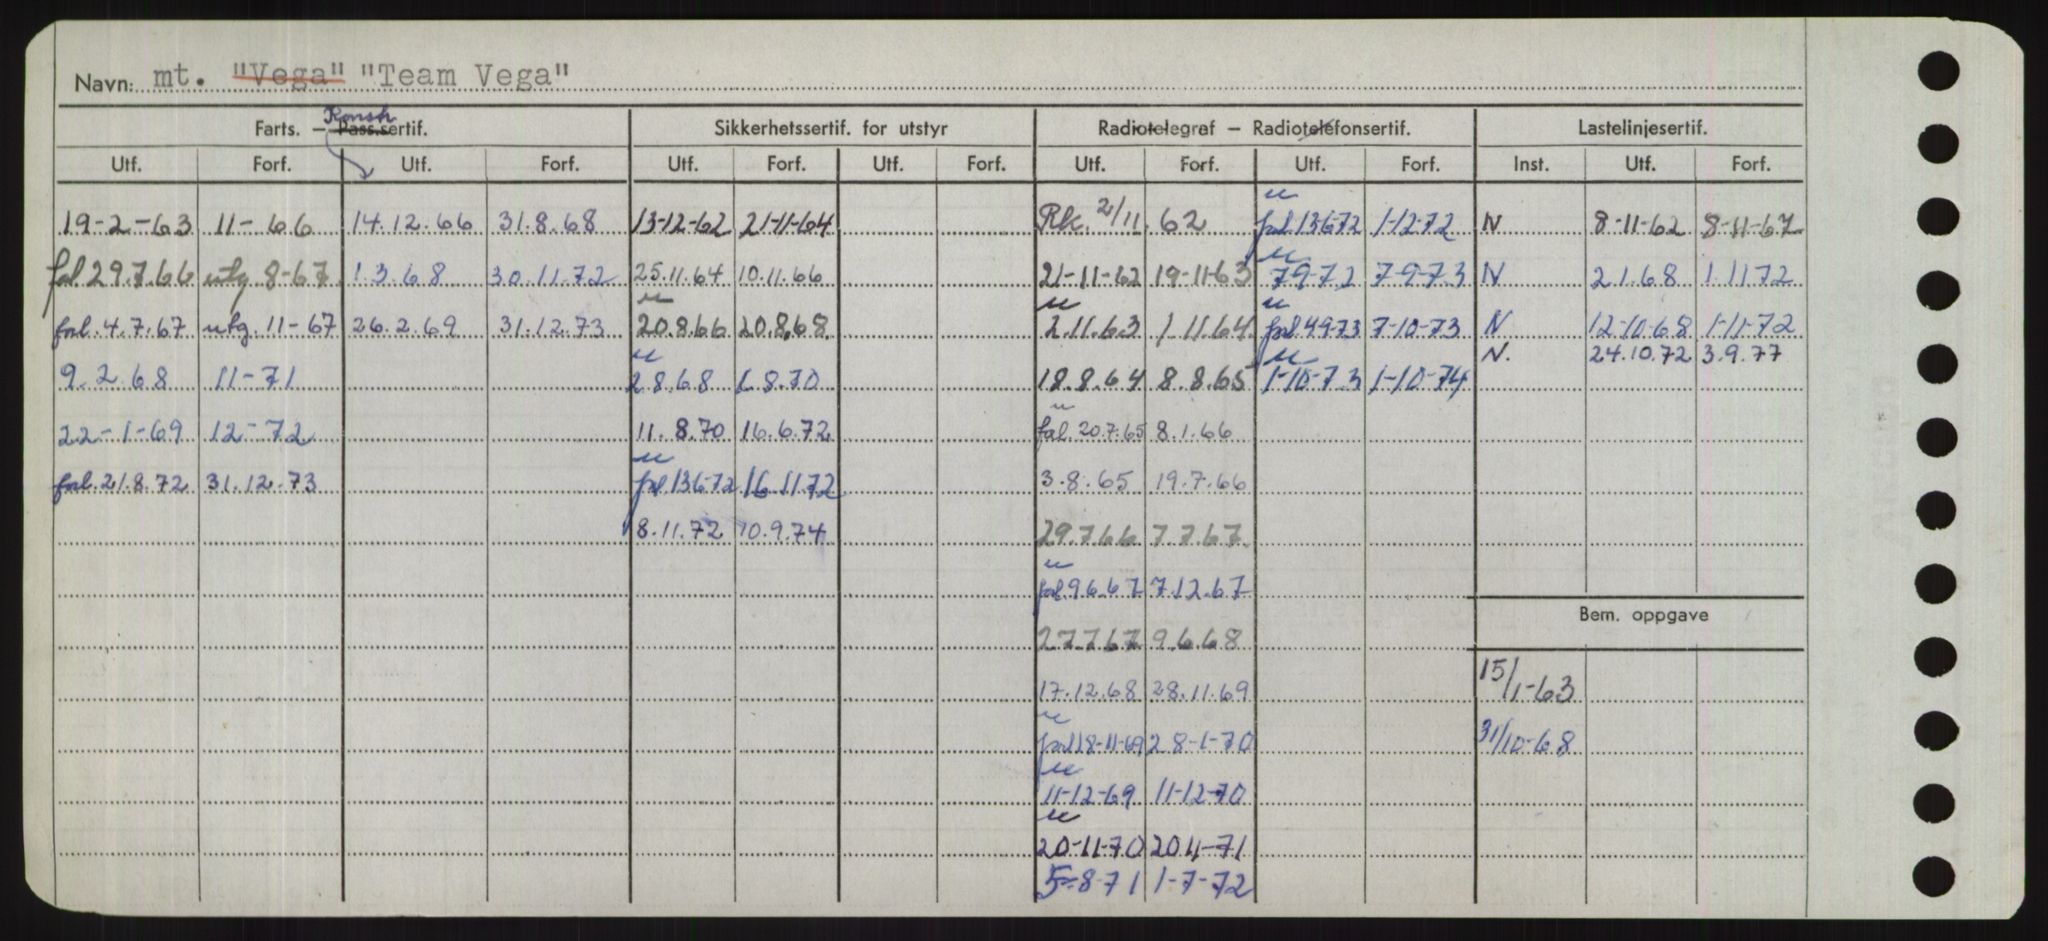 Navn: mt. "Vega" "Team Vega"
Konstr.
Farts. – Pass.sertif. Sikkerhetssertif. for utstyr Radiotelegraf – Radiotelefonsertif. Lastelinjesertif.
Utf. Forf. Utf. Forf. Utf. Forf. Utf. Forf. Utf. Forf. Utf. Forf. Inst. Utf. Forf.
19-2-63 11-66 14.12.66 31.8.68 13-12-62 21-11-64 Rk. 2/11. 62 forl 13672 1-12-72 N 8-11-62 8-11-67
fol 29.7.66 utg 8-67 1.3.68 30.11.72 25.11.64 10.11.66 21-11-62 19-11-63 79-72 7-9-73 N 2.1.68 1.1172
forl. 4.7.67 utg. 11-67 26.2.69 31.12.73 20.8.66 20.8.68. 2.11.63 1.11.64 forl 4973 7-10-73 N 12-10-68 1-11-72
N. 24.10.72 3.9.77
9.2.68 11-71 28.68 1.8.70 18.8.64 8.8.65 1-10-73 1-10-74
22-1-69 12-72 11.8.70 16.6.72 fol. 20.7.65 8.1.66
forl. 21.8.72 31.12.73 forl 13672 16.1172 3.8.65 19.7.66
8.11.72 10.9.74 29.766 7767
forl 9667 7.12.67
27767 9.6.68
Bem. oppgave
17.12.68 28.11.69 15/1-63
forl 18-11-69 28-1-70 31/10-68
11-12-69 11-12-70
20-11-70 204-71
5-871 1-7-72